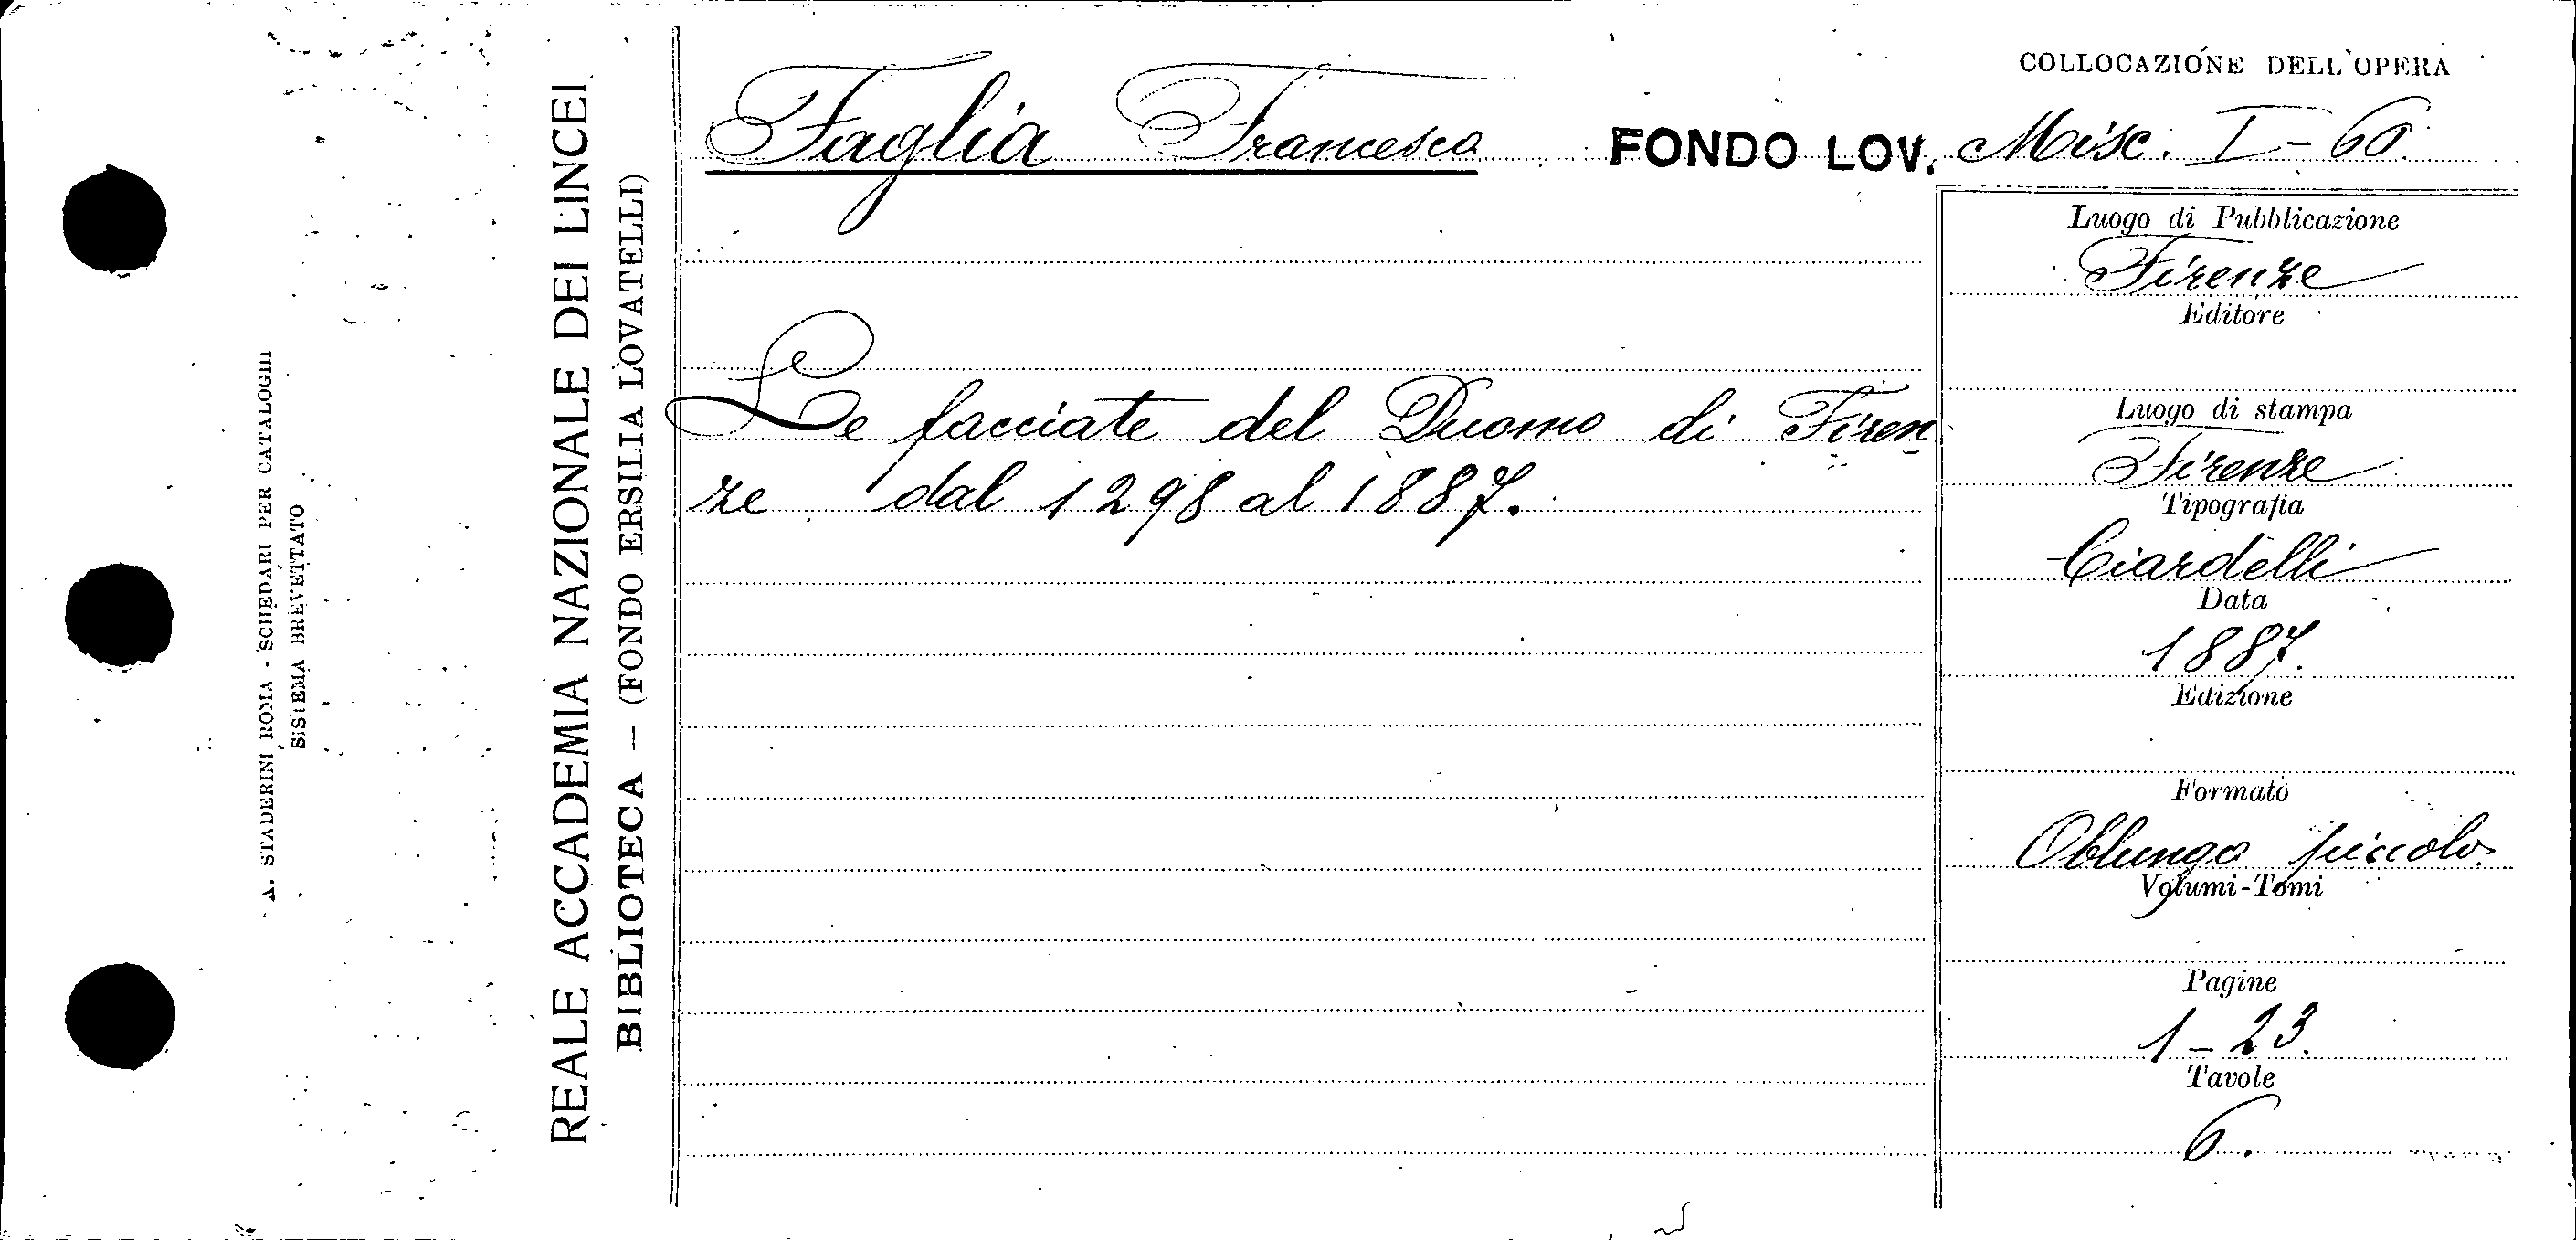 A. STADERINI ROMA - SCHEDARI PER CATALOGHI
SISTEMA BREVETTATO
REALE ACCADEMIA NAZIONALE DEI LINCEI
BIBLIOTECA — (FONDO ERSILIA LOVATELLI)
Faglia Francesco
FONDO LOV.
COLLOCAZIONE DELL'OPERA
Misc. I - 60.
Le facciate del Duomo di Firen
ze dal 1298 al 1887.
Luogo di Pubblicazione
Firenze
Editore
Luogo di stampa
Firenze
Tipografia
Ciardelli
Data
1887.
Edizione
Formato
Oblungo piccolo.
Volumi-Tomi
Pagine
1 - 23.
Tavole
6.